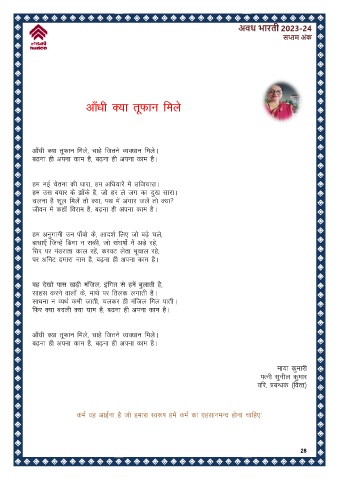 अवध भारती 2023-24
सप्तम अंक
हडको
hudco
आँधी क्या तूफान मिले
आँधी क्या तूफान मिले, चाहे जितने व्यवधान मिले।
बढ़ना ही अपना काम है, बढ़ना ही अपना काम है।
हम नई चेतना की धारा, हम अंधियारे में उजियारा।
हम उस बयार के झोंके है, जो हर ले जग का दुख सारा।
चलना है शूल मिलें तो क्या, पथ में अंगार जले तो क्या?
जीवन में कहाँ विराम है, बढ़ना ही अपना काम है।
हम अनुगामी उन पाँवो के, आदर्श लिए जो बढ़े चले,
बाधाएँ जिन्हें डिगा न सकी, जो संघर्षो में अड़े रहे,
सिर पर मंडराता काल रहें, करवट लेता भूचाल रहे,
पर अमिट हमारा नाम है, बढ़ना ही अपना काम है।
वह देखो पास खड़ी मंजिल, इंगित से हमें बुलाती है,
साहस करने वालों के, माथे पर तिलक लगाती है।
साधना न व्यर्थ कभी जाती, चलकर ही मंजिल मिल पाती।
फिर क्या बदली क्या घाम है, बढ़ना ही अपना काम है।
आँधी क्या तूफान मिले, चाहे जितने व्यवधान मिले।
बढ़ना ही अपना काम है, बढ़ना ही अपना काम है।
माया कुमारी
पत्नी सुनील कुमार
वरि. प्रबन्धक (वित्त)
कर्म वह आईना है जो हमारा स्वरूप हमें कर्म का एहसानमन्द होना चाहिए'
28